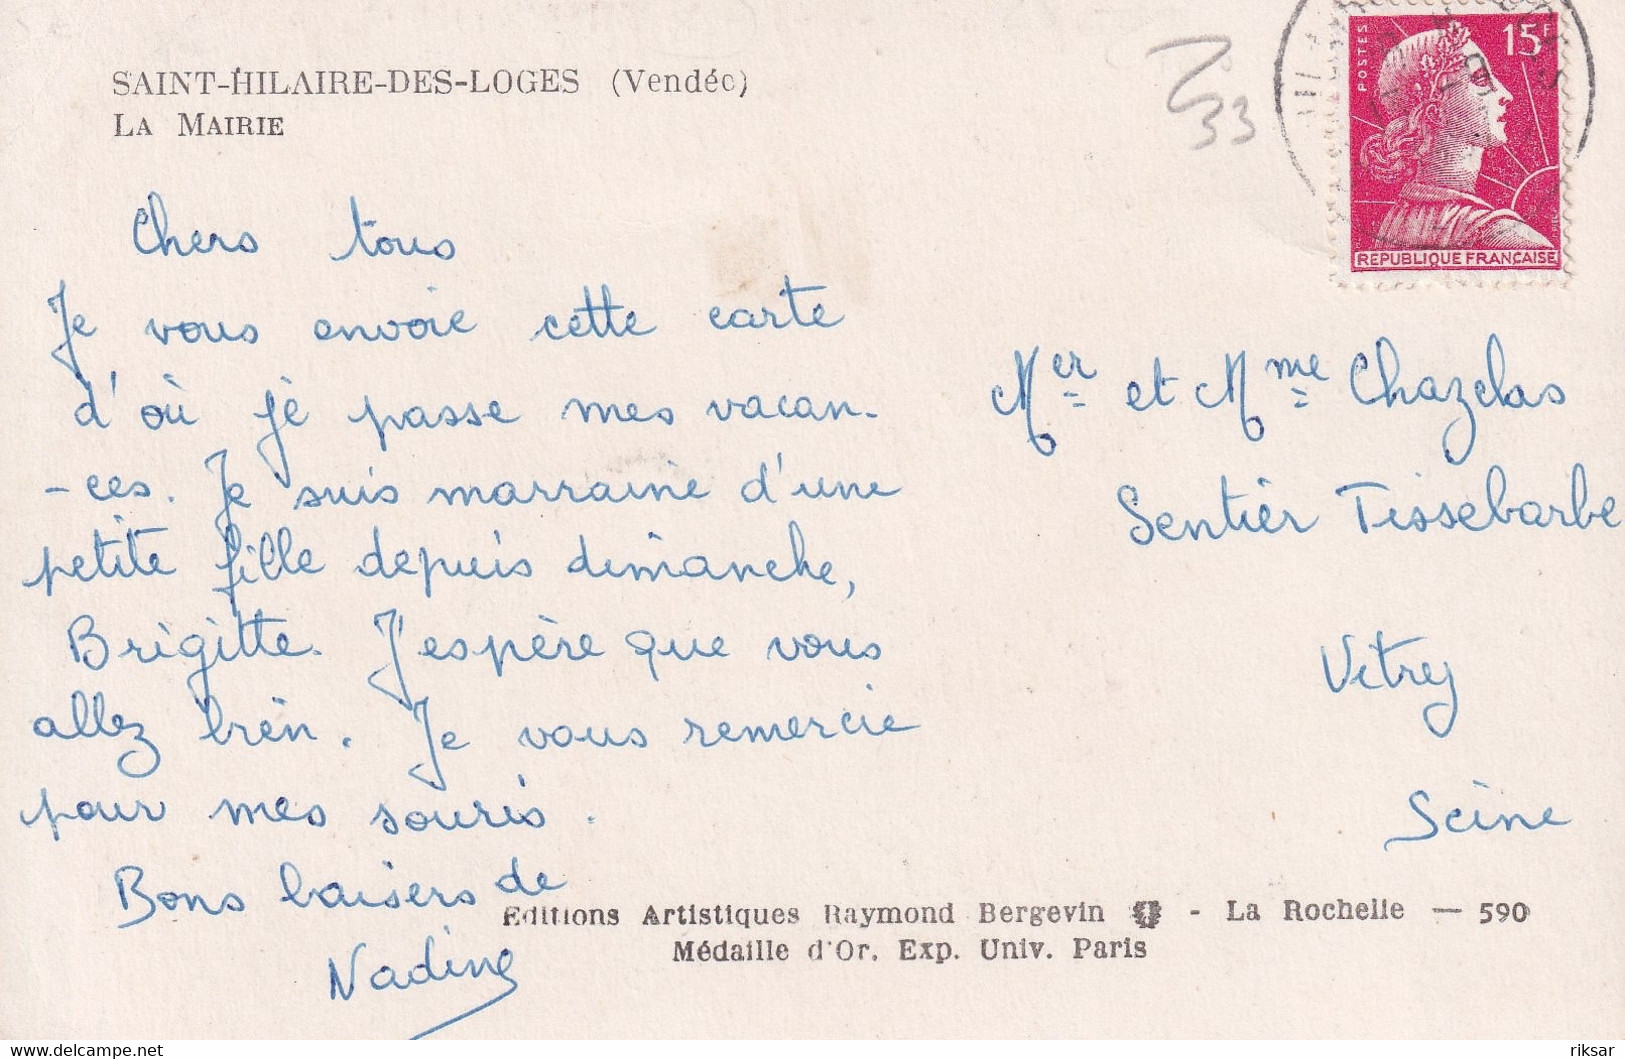 SAINT-HILAIRE-DES-LOGES (Vendée)
LA MAIRIE
33
POSTES
15F
REPUBLIQUE FRANÇAISE
Chers tous
Je vous envoie cette carte
d'où je passe mes vacan-
-ces. Je suis marraine d'une
petite fille depuis dimanche,
Brigitte. J'espère que vous
allez bien. Je vous remercie
pour mes souris.
Bons baisers de
Nadine
Mer et Mme Chazelas
Sentier Tissebarbe
Vitry
Seine
Editions Artistiques Raymond Bergevin - La Rochelle — 590
Médaille d'Or. Exp. Univ. Paris
riksar